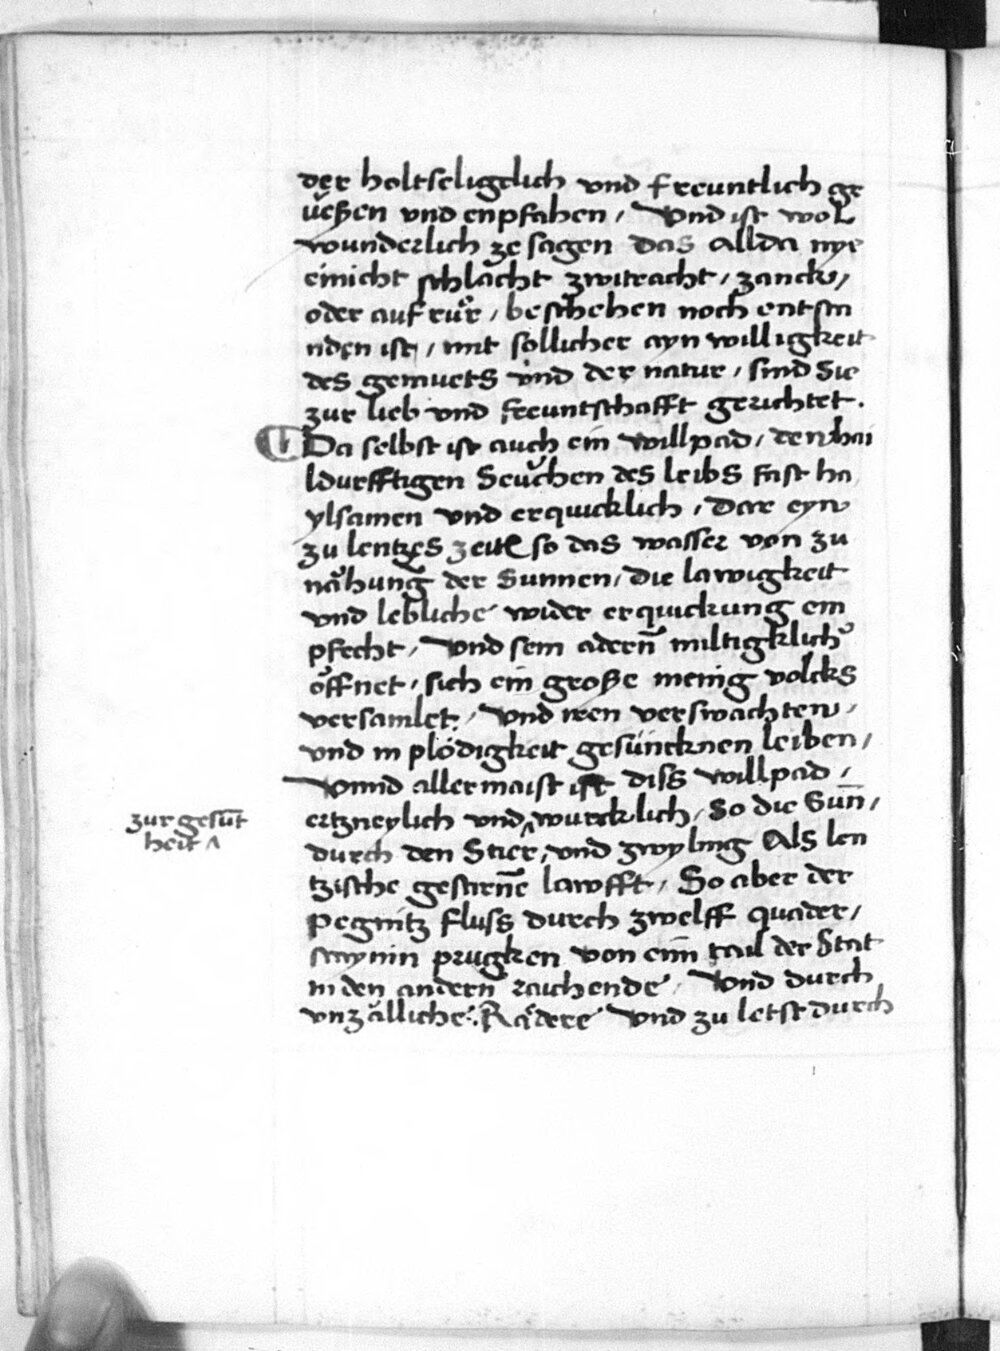 der holtseligelich vnd freuntlich ge
üeßen vnd enpfahen / Vnd ist wol
wunderlich ze sagen das allda nye
einicht schlacht zwitracht / zanck /
oder aufrůr / beschehen noch entstn
nden ist / mit sollicher ayn willigkeit
des gemuets vnd der natur / sind Sie
zur lieb vnd freuntschafft gerichtet .
Da selbst ist auch ein willpad / den hai
ldurfftigen Seuchen des leibs fast ha
ylsamen vnd erquicklich / Dar eyn
zu lentzes zeit so das wasser von zu
nähung der Sunnen / die lawigkeit
vnd lebliche wider erquickung em
pfecht / Vnd sein adern̄ miltigklich
öffnet / sich ein große menig volcks
versamlet / Vnd iren verswachten /
vnd in plödigkeit gesuncknen leiben /
Vnnd allermaist ist diss willpad /
zur gesūt
heit ^
ertzneylich vnd ^ wurcklich / So die Sun̄ /
durch den Stier / vnd zwyling Als len
tzische gestirne lawfft / So aber der
Pegnitz fluss durch zwelff quader /
staynin prugken von eim tail der Stat
in den andern raichende / Vnd durch
vnzälliche Rädere Vnd zu letst durch